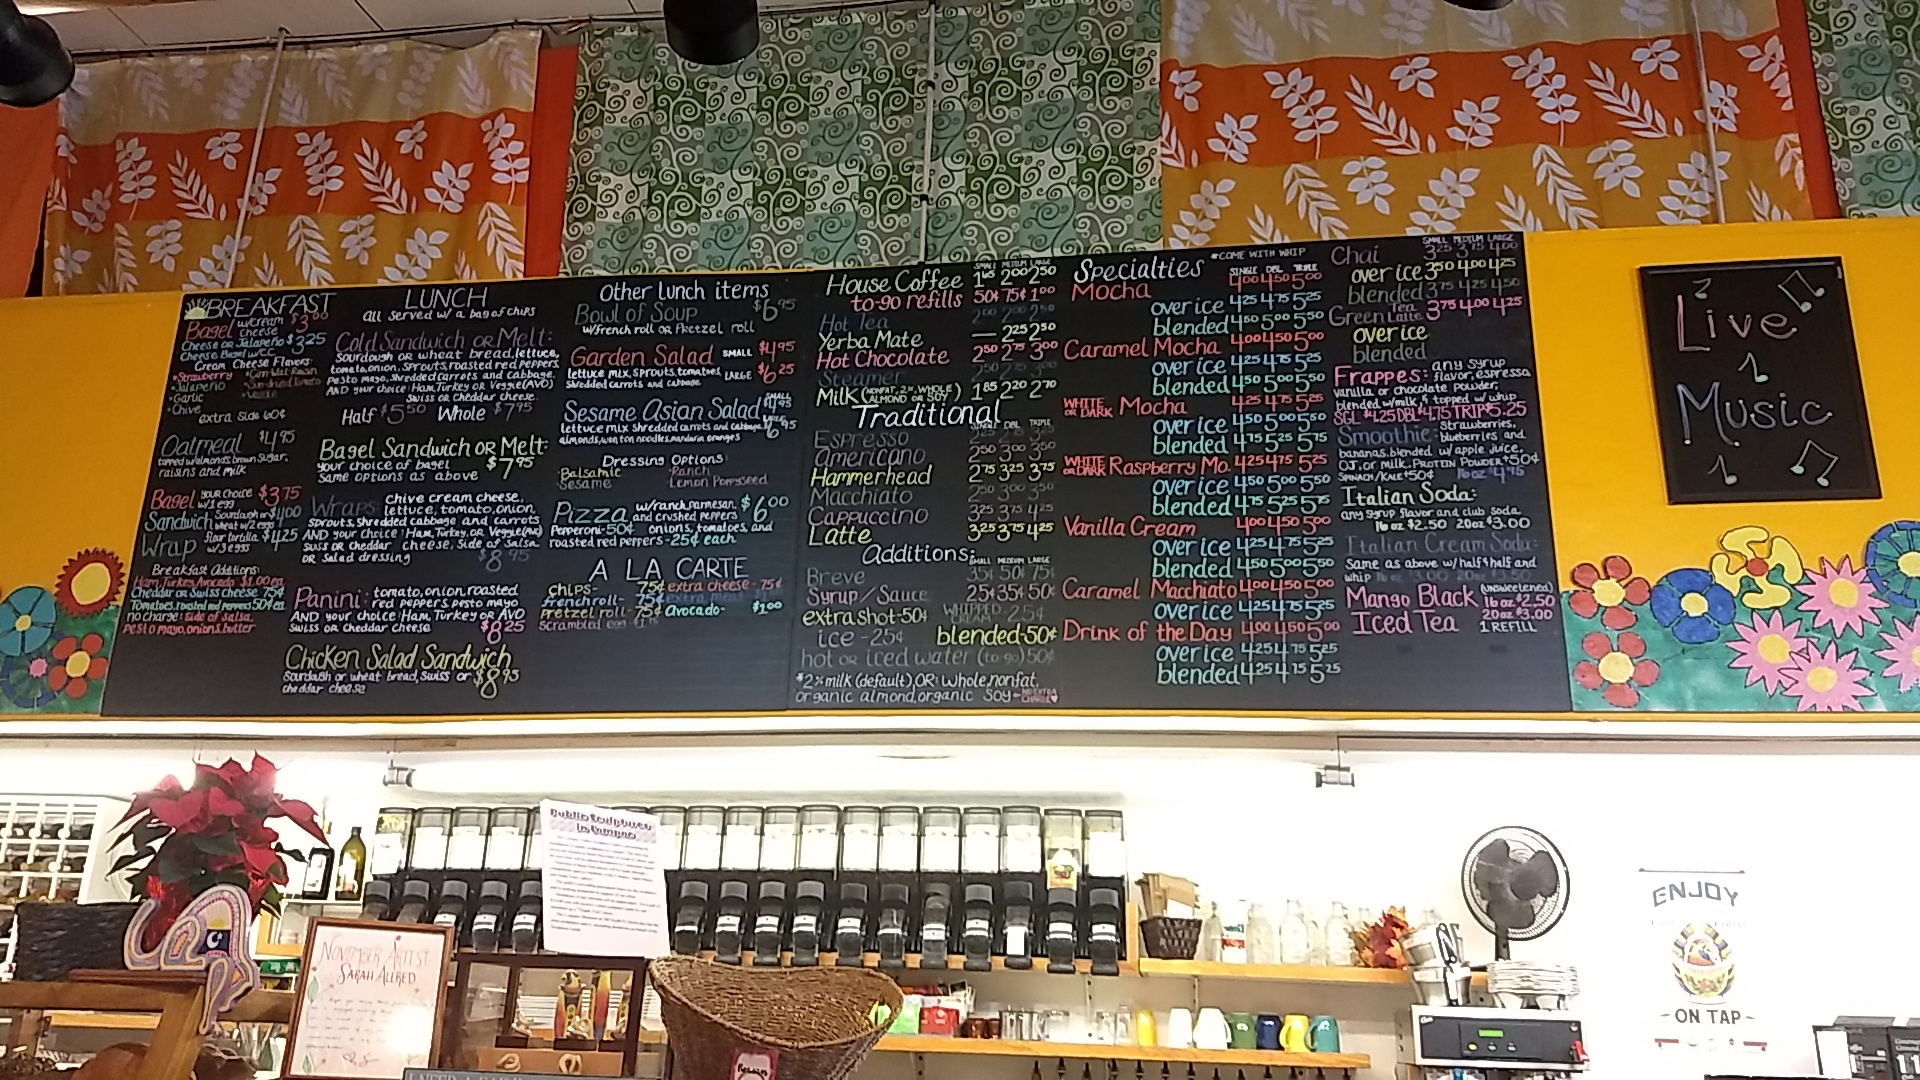 BREAKFAST
Bagel w/cream cheese $3.00
Cheese or Jalapeño $3.25
Cheese Bagel w/cc
Cream Cheese Flavors:
•Strawberry
•Jalapeño •Sun-dried Tomato
•Garlic •Veggie
•Chive
extra side 60¢
Oatmeal $4.95
topped w/almonds, brown sugar,
raisins and milk
Bagel your choice w/1 egg $3.75
Sandwich Sourdough or wheat w/2 eggs $4.00
Wrap flour tortilla w/3 eggs $4.25
Breakfast Additions:
Ham, Turkey, Avocado $1.00 ea
Cheddar or Swiss cheese 75¢
Tomatoes, roasted red peppers 50¢ ea
no charge: side of salsa,
pesto mayo, onions, butter
LUNCH
all served w/ a bag of chips
Cold Sandwich or Melt:
Sourdough or wheat bread, lettuce,
tomato, onion, sprouts, roasted red peppers,
pesto mayo, shredded carrots and cabbage.
AND your choice: Ham, Turkey or Veggie (AVO)
Swiss or Cheddar cheese.
Half $5.50 Whole $7.95
Bagel Sandwich or Melt:
your choice of bagel
same options as above $7.95
Wraps chive cream cheese,
lettuce, tomato, onion,
sprouts, shredded cabbage and carrots
AND your choice: Ham, Turkey, or Veggie (AVO)
Swiss or Cheddar cheese, side of salsa
or salad dressing $8.95
Panini: tomato, onion, roasted
red peppers, pesto mayo
AND your choice: Ham, Turkey or AVO
Swiss or Cheddar cheese $8.25
Chicken Salad Sandwich
Sourdough or wheat bread, swiss or
cheddar cheese $8.95
Other lunch items
Bowl of Soup $6.95
w/french roll or pretzel roll
Garden Salad SMALL $4.95
lettuce mix, sprouts, tomatoes, LARGE $6.25
shredded carrots and cabbage
Sesame Asian Salad SMALL $4.95
lettuce mix shredded carrots and cabbage, LARGE $6.95
almonds, won ton noodles, mandarin oranges
Dressing Options:
•Balsamic •Ranch
•Sesame •Lemon Poppyseed
Pizza w/ranch, parmesan, and crushed peppers $6.00
Pepperoni-50¢ onions, tomatoes, and
roasted red peppers -25¢ each
A LA CARTE
chips- 75¢ extra cheese-75¢
french roll- 75¢
pretzel roll-75¢ Avocado- $1.00
scrambled egg
SMALL MEDIUM LARGE
House Coffee 1.65 2.00 2.50
to-go refills 50¢ 75¢ 1.00
Hot Tea 2.00 2.00 2.50
Yerba Mate — 2.25 2.50
Hot Chocolate 2.50 2.75 3.00
Steamer
Milk (NONFAT, 2%, WHOLE, ALMOND OR SOY) 1.85 2.20 2.70
Traditional
SINGLE DBL TRIPLE
Espresso
Americano 2.50 3.00 3.50
Hammerhead 2.75 3.25 3.75
Macchiato 2.50 3.00 3.50
Cappuccino 3.25 3.75 4.25
Latte 3.25 3.75 4.25
Additions:
SMALL MEDIUM LARGE
Breve 35¢ 50¢ 75¢
Syrup/Sauce 25¢ 35¢ 50¢
extra shot-50¢ WHIPPED CREAM-25¢
ice -25¢ blended-50¢
hot or iced water (to-go) 50¢
*2% milk (default), OR: whole, nonfat,
organic almond, organic soy - NO EXTRA CHARGE
Specialties *COME WITH WHIP
SINGLE DBL TRIPLE
Mocha 4.00 4.50 5.00
over ice 4.25 4.75 5.25
blended 4.50 5.00 5.50
Caramel Mocha 4.00 4.50 5.00
over ice 4.25 4.75 5.25
blended 4.50 5.00 5.50
WHITE OR DARK Mocha 4.25 4.75 5.25
over ice 4.50 5.00 5.50
blended 4.75 5.25 5.75
WHITE OR DARK Raspberry Mo. 4.25 4.75 5.25
over ice 4.50 5.00 5.50
blended 4.75 5.25 5.75
Vanilla Cream 4.00 4.50 5.00
over ice 4.25 4.75 5.25
blended 4.50 5.00 5.50
Caramel Macchiato 4.00 4.50 5.00
over ice 4.25 4.75 5.25
Drink of the Day 4.00 4.50 5.00
over ice 4.25 4.75 5.25
blended 4.25 4.75 5.25
SMALL MEDIUM LARGE
Chai 3.25 3.75 4.00
over ice 3.50 4.00 4.25
blended 3.75 4.25 4.50
Green Tea Latte 3.75 4.00 4.25
over ice
blended
Frappes: any syrup
flavor, espresso
vanilla or chocolate powder,
blended w/milk & topped w/ whip
SGL $4.25 DBL $4.75 TRIP $5.25
Smoothie - Strawberries,
blueberries and
bananas, blended w/ apple juice,
O.J. or milk. PROTEIN POWDER +50¢
SPINACH/KALE +50¢ 16oz $4.95
Italian Soda:
any syrup flavor and club soda
16oz $2.50 20oz $3.00
Italian Cream Soda:
Same as above w/ half & half and
whip
Mango Black (UNSWEETENED)
Iced Tea 16oz $2.50
20oz $3.00
1 REFILL
Live
Music
Public Sculptures
In Pomona
NOVEMBER ARTIST:
SARAH ALLRED
ENJOY
- ON TAP -